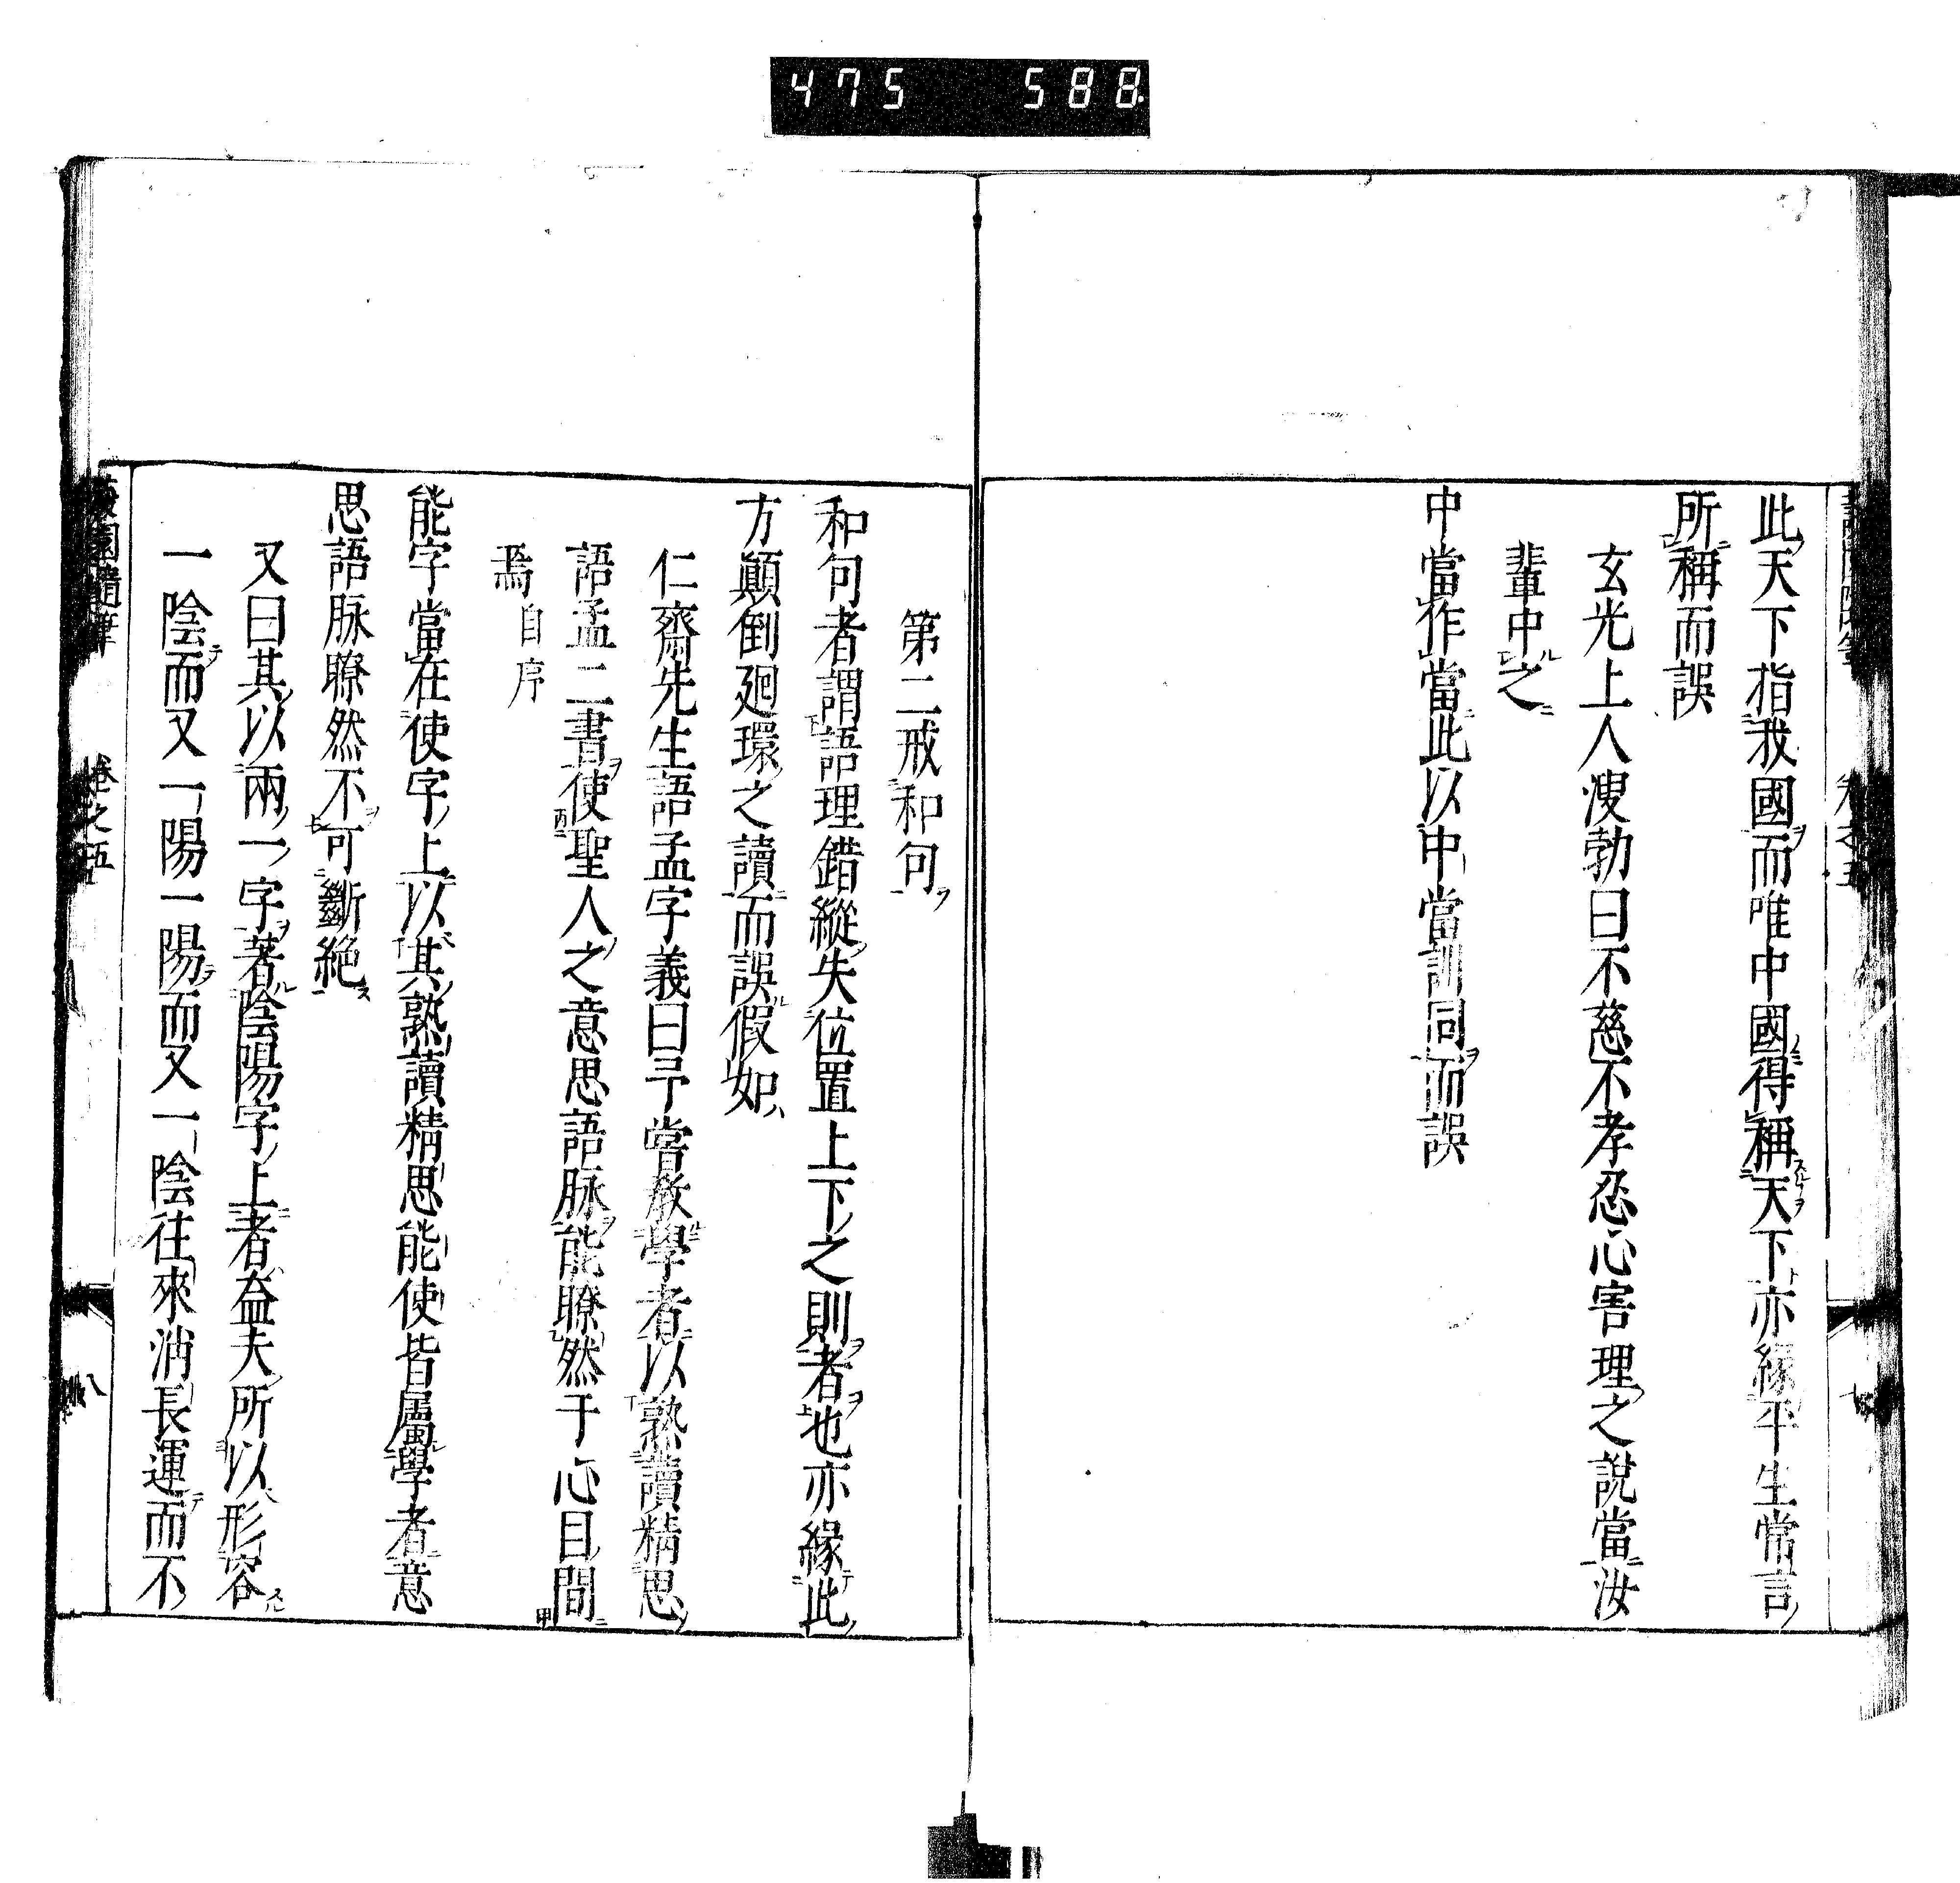 475 588
此天下指我國而唯中國得稱天下亦緣平生常言
所稱而誤
玄光上人溲勃曰不慈不孝忍心害理之說當汝
輩中之
中當作當此以中當訓同而誤
第二戒和句
和句者謂語理錯縱失位置上下之則者也亦緣此
方顛倒廻環之讀而誤假如
仁齋先生語孟字義曰予嘗教學者以熟讀精思
語孟二書使聖人之意思語脉能瞭然于心目間
焉自序
能字當在使字上以其熟讀精思能使皆屬學者意
思語脉瞭然不可斷絕
又曰其以兩一字著陰陽字上者葢夫所以形容
一陰而又一陽一陽而又一陰往來消長運而不
園隨筆 卷之五 八